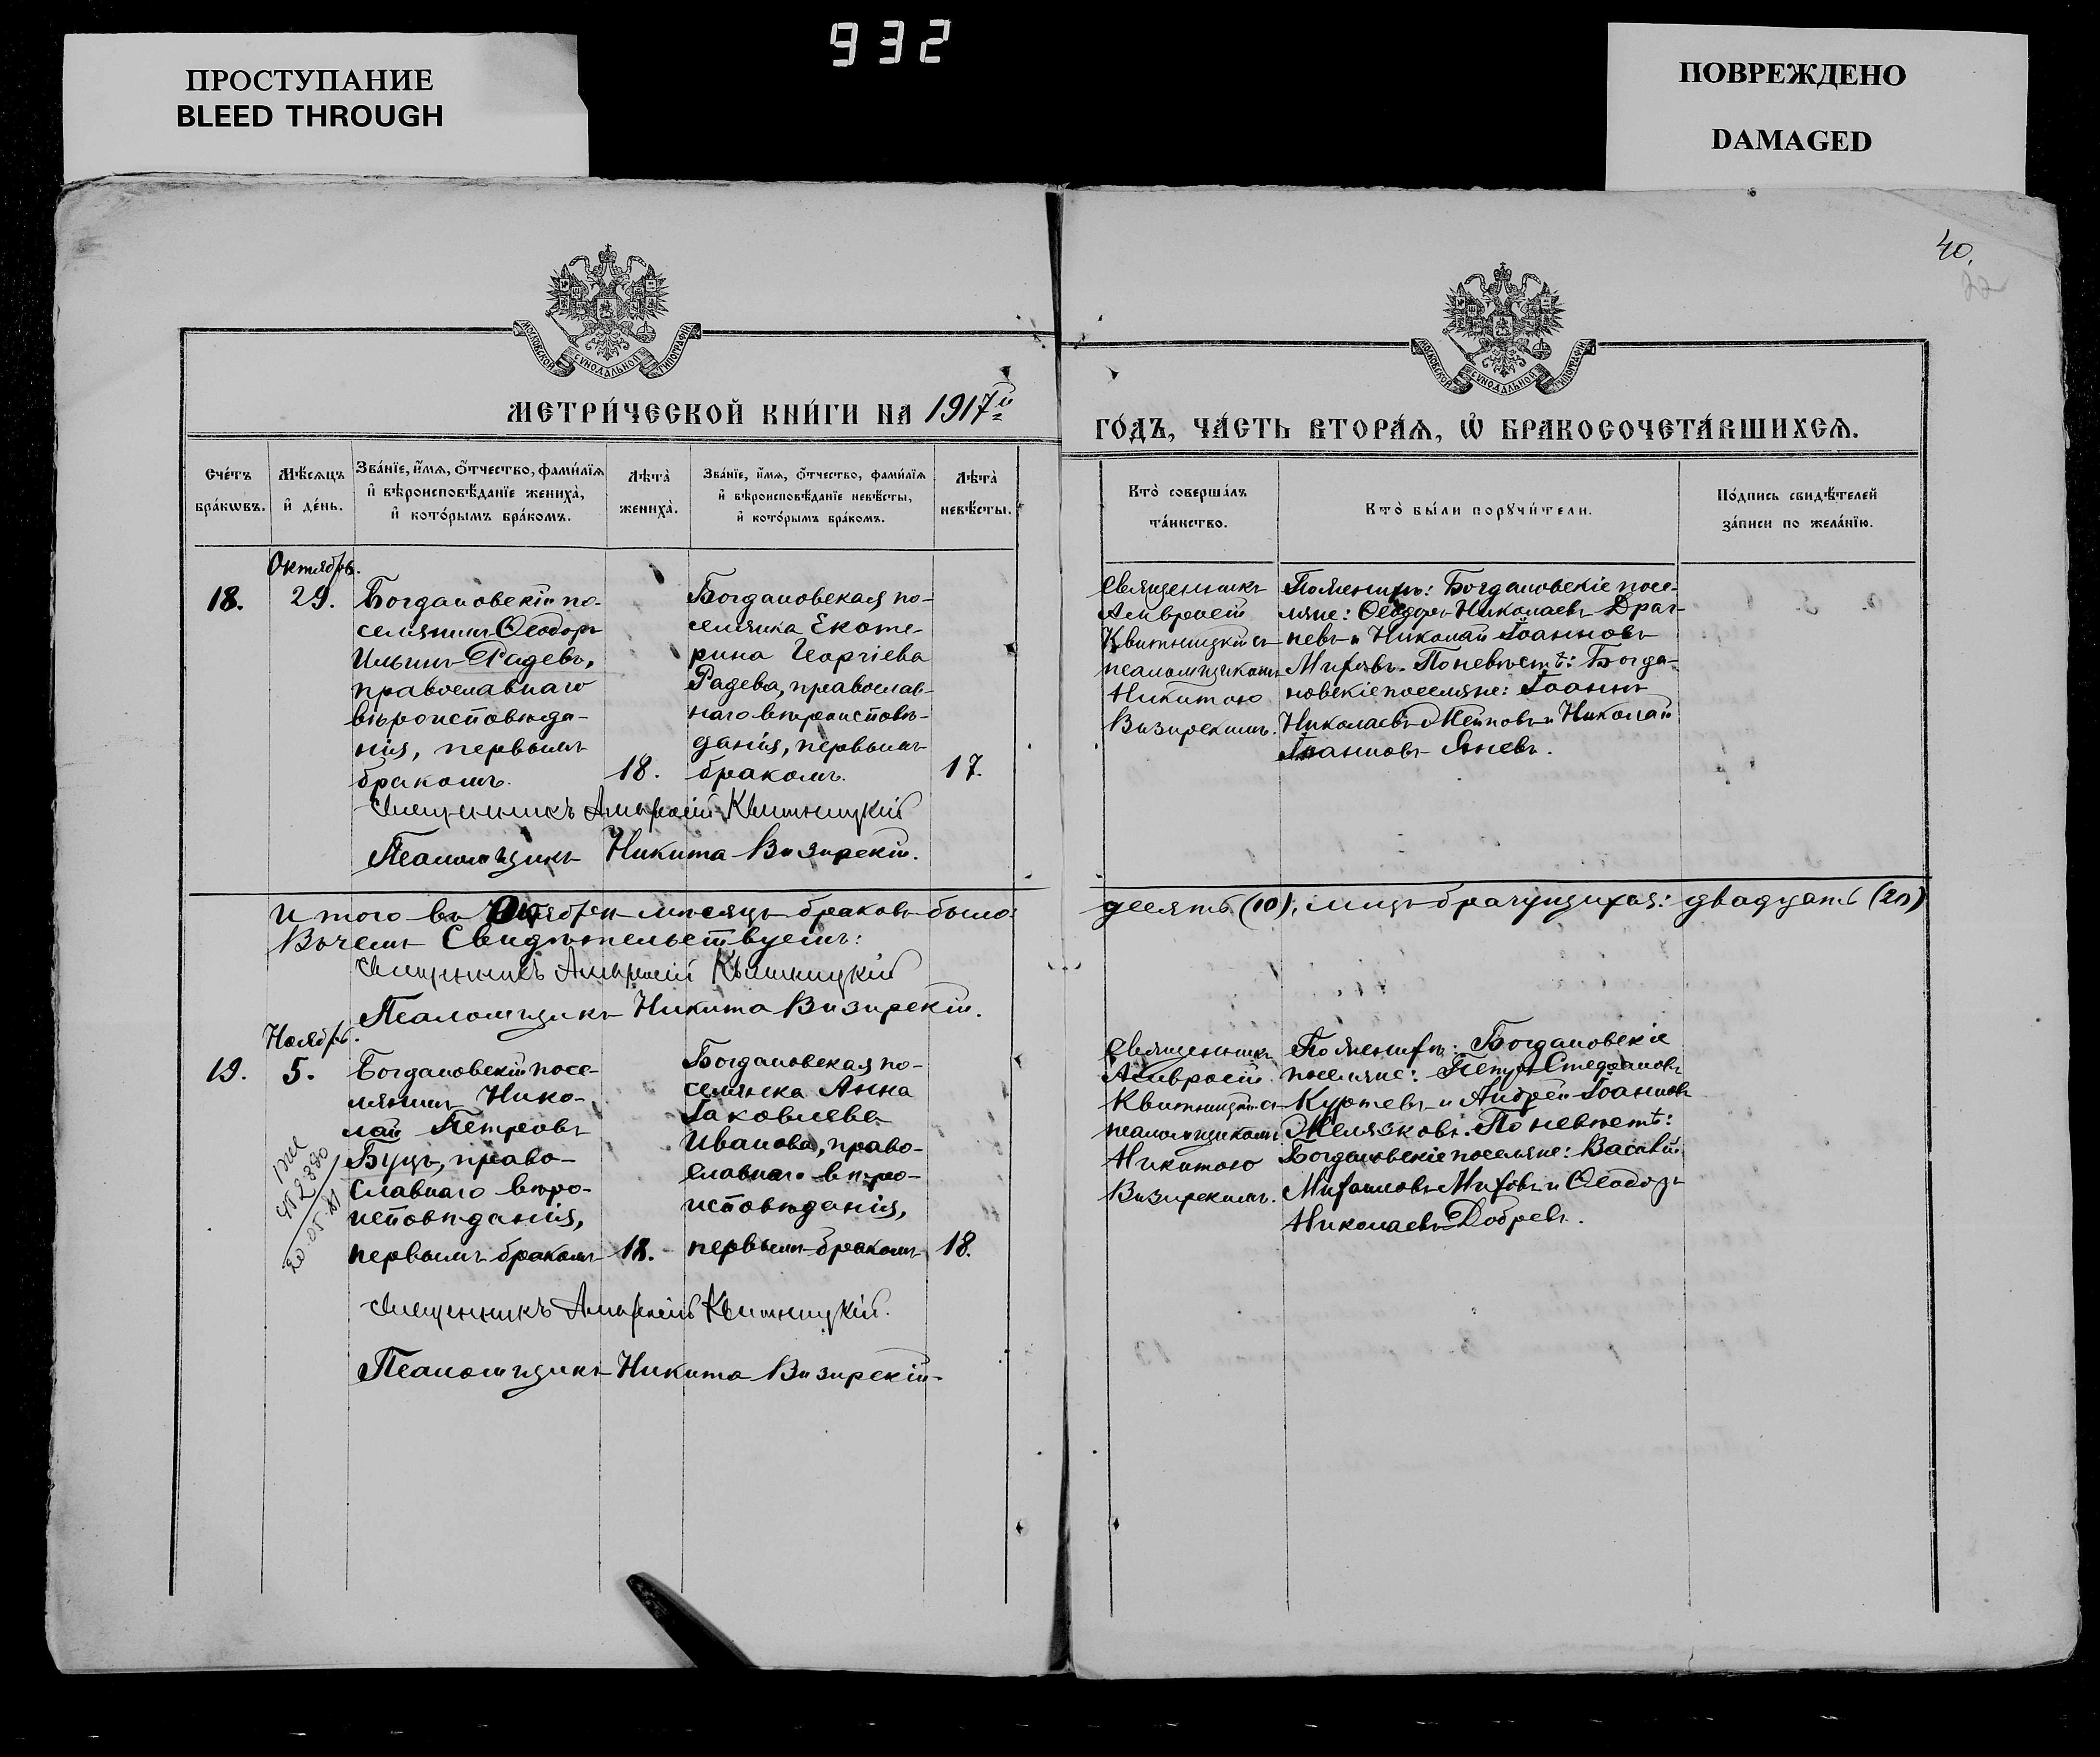 932
ПРОСТУПАНИЕ
BLEED THROUGH
ПОВРЕЖДЕНО
DAMAGED
40.
МОСКОВСКОЙ СУНОДАЛЬНОЙ ТИПОГРАФІИ
МОСКОВСКОЙ СУНОДАЛЬНОЙ ТИПОГРАФІИ
МЕТРИ́ЧЕСКОЙ КНИ́ГИ НА 1917й
ГО́ДЪ, ЧА́СТЬ ВТОРА́Ѧ, Ѡ҆ БРАКОСОЧЕТА́ВШИХСѦ.
Сче́тъ бра́кѡвъ.
Мѣ́сѧцъ и҆ де́нь.
Зва́нїе, и҆́мѧ, ѻ҆́тчество, фами́лїѧ
и҆ вѣроисповѣ́данїе жениха̀,
и҆ кото́рымъ бра́комъ.
Лѣта̀ жениха̀.
Зва́нїе, и҆́мѧ, ѻ҆́тчество, фами́лїѧ
и҆ вѣроисповѣ́данїе невѣ́сты,
и҆ кото́рымъ бра́комъ.
Лѣта̀ невѣ́сты.
Кто̀ соверша́лъ
та́инство.
Кто̀ бы́ли порꙋчи́тели.
По́дпись свидѣ́телей
за́писи по жела́нїю.
Октябрь.
18.
29.
Богдановскій по-
селянинъ Ѳеодоръ
Ильинъ Радевъ,
православнаго
вѣроисповѣда-
нія, первымъ
бракомъ.
18.
Богдановская по-
селянка Екате-
рина Георгіева
Радева, православ-
наго вѣроисповѣ-
данія, первымъ
бракомъ.
17.
Священникъ
Амвросій
Квитницкій съ
псаломщикомъ
Никитою
Визирскимъ.
По женихѣ: Богдановскіе посе-
ляне: Ѳеодоръ Николаевъ Драг-
невъ и Николай Іоанновъ
Митевъ. По невѣстѣ: Богда-
новскіе поселяне: Іоаннъ
Николаевъ Пейковъ и Николай
Іоанновъ Яневъ.
Священникъ Амвросій Квитницкій
Псаломщикъ Никита Визирскій.
Итого въ Октябрѣ мѣсяцѣ браковъ было:
десять (10), лицъ брачущихся: двадцать (20)
Въ чемъ Свидѣтельствуемъ:
Священникъ Амвросій Квитницкій
Псаломщикъ Никита Визирскій.
Ноябрь.
19.
5.
Богдановскій посе-
лянинъ Нико-
лай Петровъ
Буцъ, право-
славнаго вѣро-
исповѣданія,
первымъ бракомъ
18.
Богдановская по-
селянка Анна
Іаковлева
Иванова, право-
славнаго вѣро-
исповѣданія,
первымъ бракомъ
18.
Священникъ
Амвросій
Квитницкій съ
псаломщикомъ
Никитою
Визирскимъ.
По женихѣ: Богдановскіе
поселяне: Петръ Стефановъ
Куртевъ и Андрей Іоанновъ
Желязковъ. По невѣстѣ:
Богдановскіе поселяне: Василій
Михаиловъ Миховъ и Ѳеодоръ
Николаевъ Добревъ.
Священникъ Амвросій Квитницкій.
Псаломщикъ Никита Визирскій.